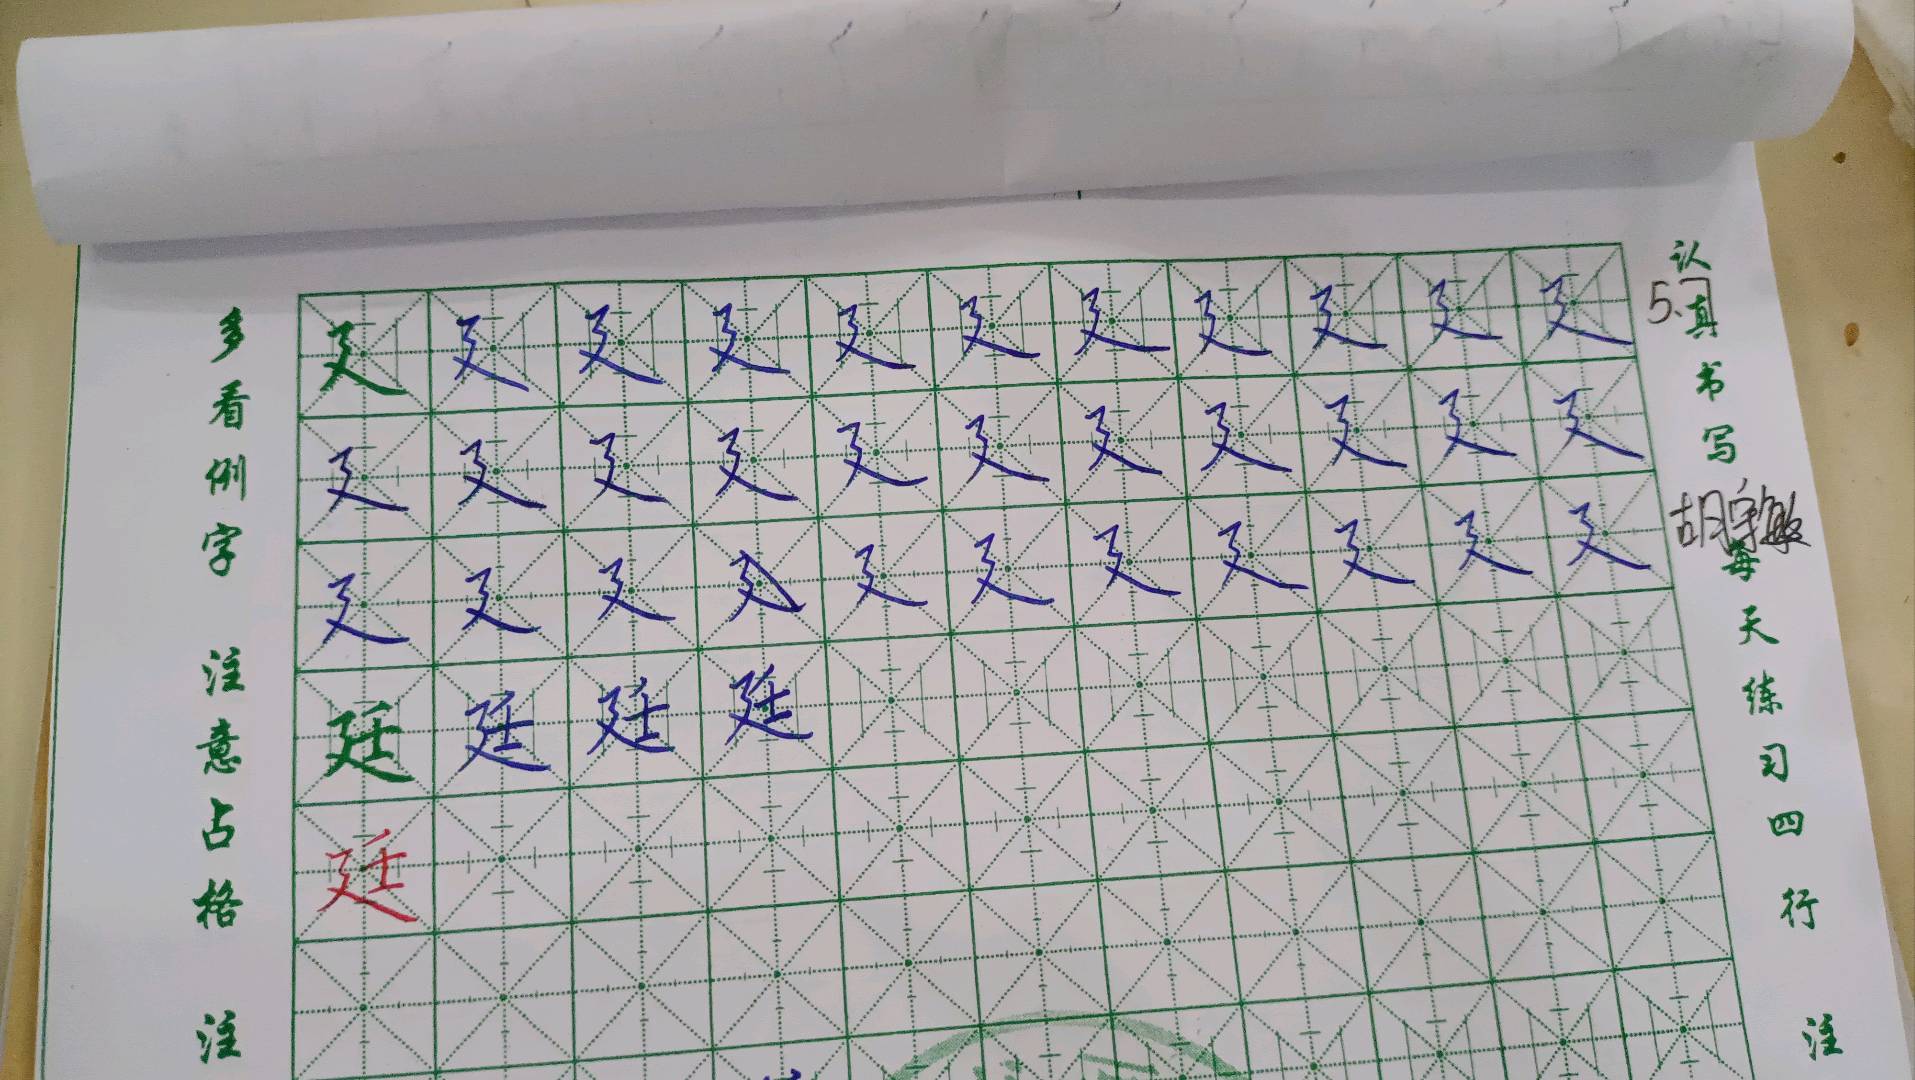 多看例字 注意占格 注
廴廴廴廴廴廴廴廴廴廴廴
廴廴廴廴廴廴廴廴廴廴廴
廴廴廴廴廴廴廴廴廴廴廴
廷廷廷廷
廷
认真书写 每天练习四行 注
5.